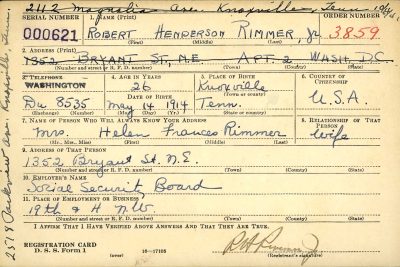 2112 Magnolia Ave. Knoxville, Tenn.
SERIAL NUMBER 1. NAME (Print) ORDER NUMBER
000621 ROBERT HENDERSON RIMMER, Jr 3859
(First) (Middle) (Last)
2. ADDRESS (Print)
1352 BRYANT ST, N.E APT. 2 WASH. D.C.
(Number and street or R. F. D. number) (Town) (County) (State)
3. TELEPHONE 4. AGE IN YEARS 5. PLACE OF BIRTH 6. COUNTRY OF CITIZENSHIP
WASHINGTON 26 Knoxville
DATE OF BIRTH
Du 8535 May 14 1914 Tenn. U.S.A.
(Exchange) (Number) (Mo.) (Day) (Yr.) (State or country)
7. NAME OF PERSON WHO WILL ALWAYS KNOW YOUR ADDRESS 8. RELATIONSHIP OF THAT PERSON
Mrs. Helen Frances Rimmer wife
(Mr., Mrs., Miss) (First) (Middle) (Last)
9. ADDRESS OF THAT PERSON
1352 Bryant St. N.E.
(Number and street or R. F. D. number) (Town) (County) (State)
10. EMPLOYER'S NAME
Social Security Board
11. PLACE OF EMPLOYMENT OR BUSINESS
19th & H N.W.
(Number and street or R. F. D. number) (Town) (County) (State)
I AFFIRM THAT I HAVE VERIFIED ABOVE ANSWERS AND THAT THEY ARE TRUE.
REGISTRATION CARD
D. S. S. Form 1 16—17105 (Registrant's signature)
2519 Parkview Ave Knoxville, Tenn.